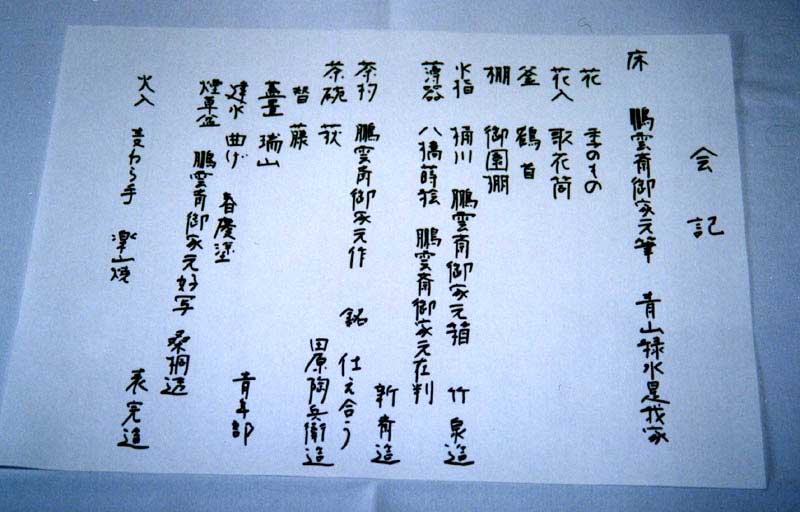 会記
床 鵬雲斎御家元筆 青山緑水是我家
花 季のもの
花入 花筒
釜 鶴首
棚 御園棚
水指 桶川 鵬雲斎御家元箱 竹泉造
薄器 八橋蒔絵 鵬雲斎御家元在判
新斎造
茶杓 鵬雲斎御家元作 銘 仕え合う
茶碗 萩 田原陶兵衛造
替 藤
蓋置 瑞山 青年部
建水 曲げ 春慶塗
煙草盆 鵬雲斎御家元好写
火入 麦わら手 楽山焼 表完造